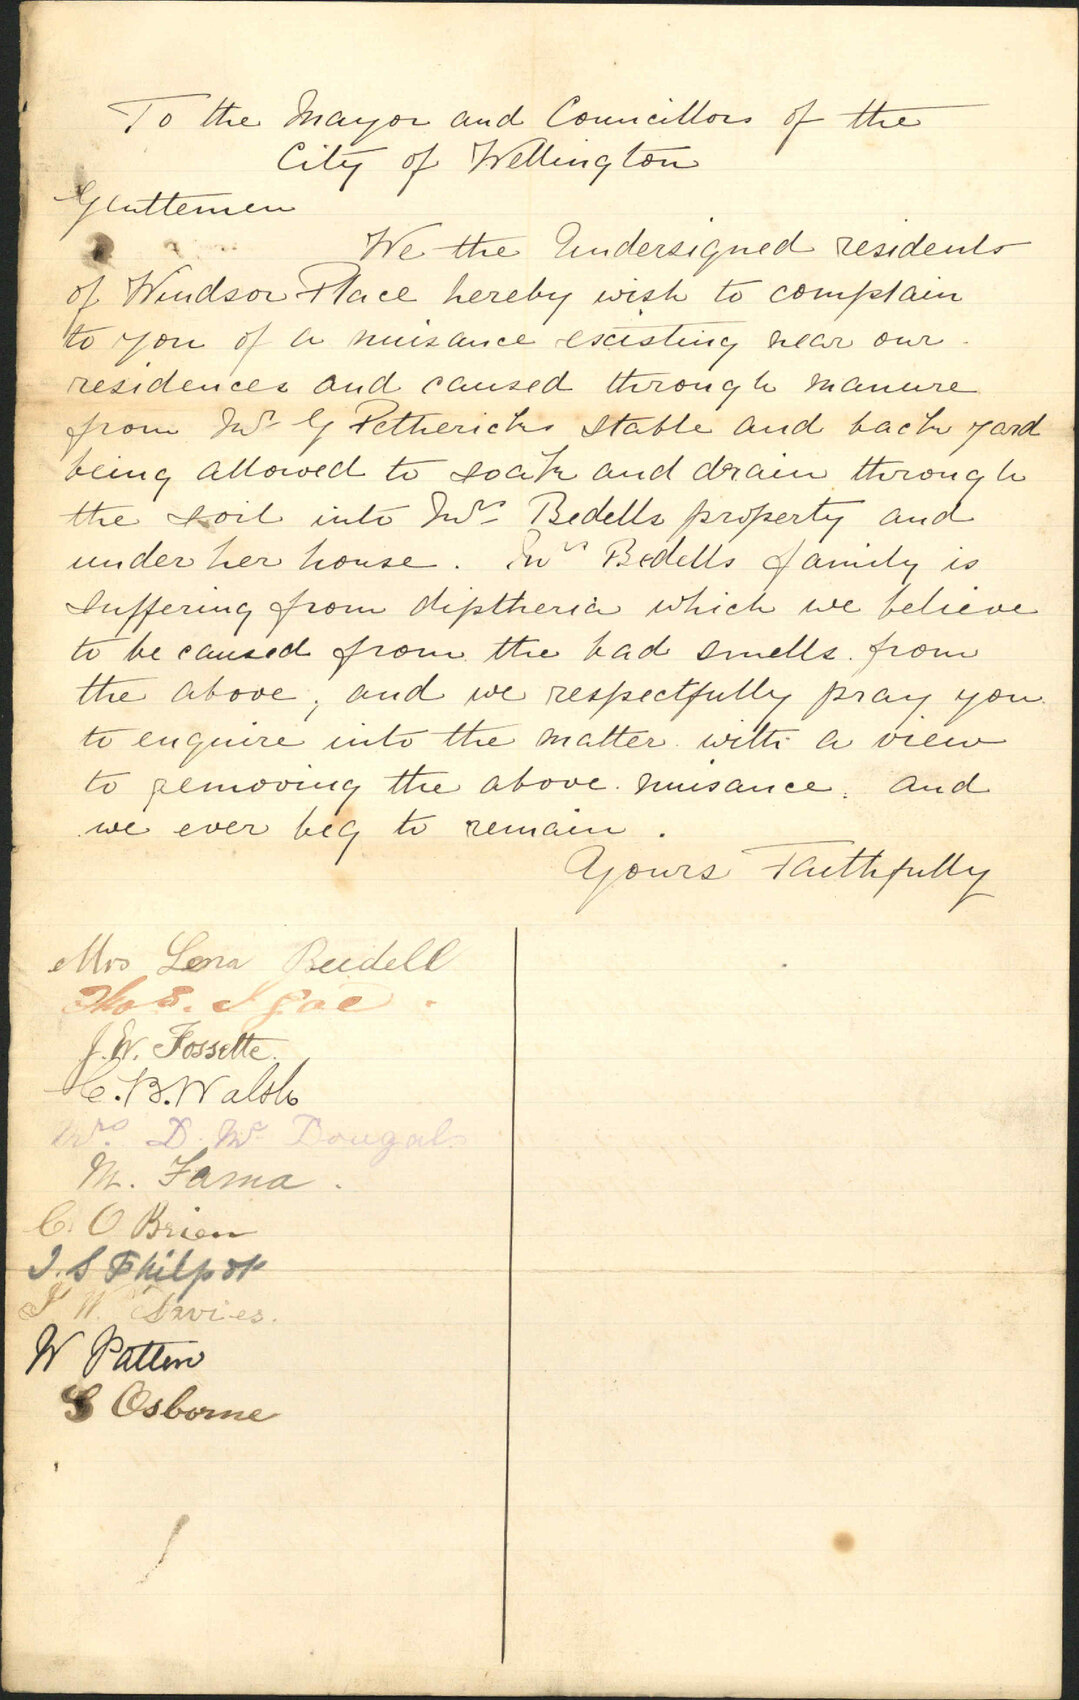 To the Mayor and Councillors of the
City of Wellington
Gentlemen
We the Undersigned residents
of Windsor Place hereby wish to complain
to you of a nuisance existing near our
residences and caused through manure
from Mr G Petherick's stable and back yard
being allowed to soak and drain through
the soil into Mrs Bedells property and
under her house. Mrs Bedells family is
suffering from diptheria which we believe
to be caused from the bad smells from
the above, and we respectfully pray you
to enquire into the matter with a view
to removing the above nuisance. and
we ever beg to remain.
Yours Faithfully
Mrs Lena Beedell
Thos.
J. W. Fossette
C. B. Walsh
Mrs. D. Mc Dougal
M. Fama.
C. O Brien
J. S Philpot
W Davies.
W Patten
Osborne